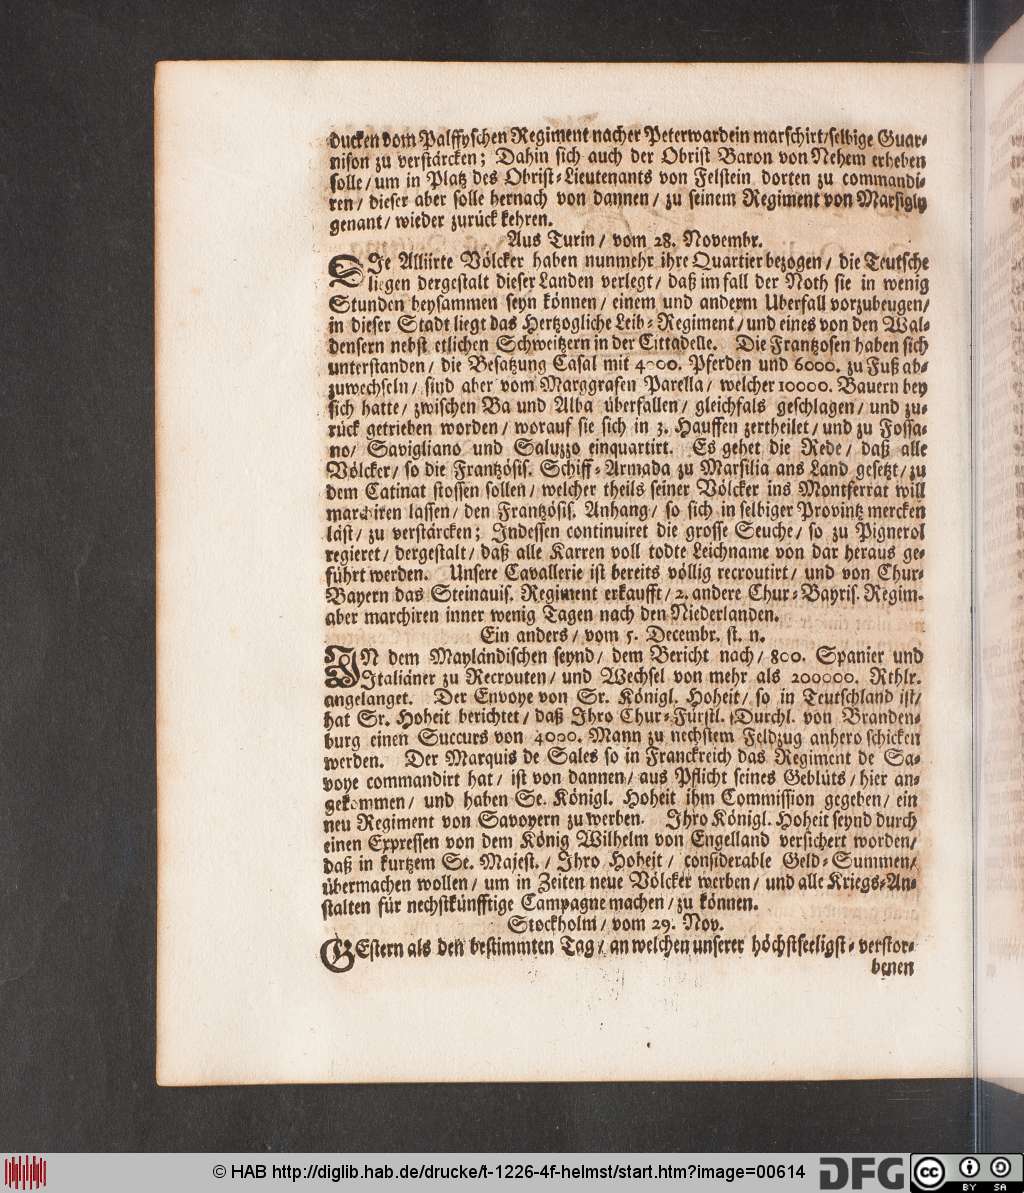 ducken vom Palffyschen Regiment nacher Peterwardein marschirt/selbige Guar-
nison zu verstärcken; Dahin sich auch der Obrist Baron von Nehem erheben
solle/um in Platz des Obrist-Lieutenants von Felstein dorten zu commandi-
ren/ dieser aber solle hernach von dannen/ zu seinem Regiment von Marsigly
genant/ wieder zurück kehren.
Aus Turin/ vom 28. Novembr.
DIe Alliirte Völcker haben nunmehr ihre Quartier bezogen/ die Teutsche
liegen dergestalt dieser Landen verlegt/ daß im fall der Noth sie in wenig
Stunden beysammen seyn können/ einem und anderm Uberfall vorzubeugen/
in dieser Stadt liegt das Hertzogliche Leib-Regiment/und eines von den Wal-
densern nebst etlichen Schweitzern in der Cittadelle. Die Frantzosen haben sich
unterstanden/ die Besatzung Casal mit 4000. Pferden und 6000. zu Fuß ab-
zuwechseln/ sind aber vom Marggrafen Parella/ welcher 10000. Bauern bey
sich hatte/ zwischen Ba und Alba überfallen/ gleichfals geschlagen/ und zu-
rück getrieben worden/ worauf sie sich in 3. Hauffen zertheilet/ und zu Fossa-
no/ Savigliano und Saluzzo einquartirt. Es gehet die Rede/ daß alle
Völcker/ so die Frantzösis. Schiff-Armada zu Marsilia ans Land gesetzt/ zu
dem Catinat stossen sollen/ welcher theils seiner Völcker ins Montferrat will
marchiren lassen/ den Frantzösis. Anhang/ so sich in selbiger Provintz mercken
läst/ zu verstärcken; Indessen continuiret die grosse Seuche/ so zu Pignerol
regieret/ dergestalt/ daß alle Karren voll todte Leichname von dar heraus ge-
führt werden. Unsere Cavallerie ist bereits völlig recroutirt/ und von Chur-
Bayern das Steinauis. Regiment erkaufft/ 2. andere Chur-Bayris. Regim.
aber marchiren inner wenig Tagen nach den Niederlanden.
Ein anders/ vom 5. Decembr. st. n.
IN dem Mayländischen seynd/ dem Bericht nach/ 800. Spanier und
Italiäner zu Recrouten/ und Wechsel von mehr als 200000. Rthlr.
angelanget. Der Envoye von Sr. Königl. Hoheit/ so in Teutschland ist/
hat Sr. Hoheit berichtet/ daß Ihro Chur-Fürstl. Durchl. von Branden-
burg einen Succurs von 4000. Mann zu nechstem Feldzug anhero schicken
werden. Der Marquis de Sales so in Franckreich das Regiment de Sa-
voye commandirt hat/ ist von dannen/ aus Pflicht seines Geblüts/ hier an-
gekommen/ und haben Se. Königl. Hoheit ihm Commission gegeben/ ein
neu Regiment von Savoyern zu werben. Ihro Königl. Hoheit seynd durch
einen Expressen von dem König Wilhelm von Engelland versichert worden/
daß in kurtzem Se. Majest./ Ihro Hoheit/ considerable Geld-Summen/
übermachen wollen/ um in Zeiten neue Völcker werben/ und alle Kriegs-An-
stalten für nechstkünfftige Campagne machen/ zu können.
Stockholm/ vom 29. Nov.
GEstern als den bestimmten Tag/ an welchen unserer höchstseeligst-verstor-
benen
© HAB http://diglib.hab.de/drucke/t-1226-4f-helmst/start.htm?image=00614
DFG
cc BY SA